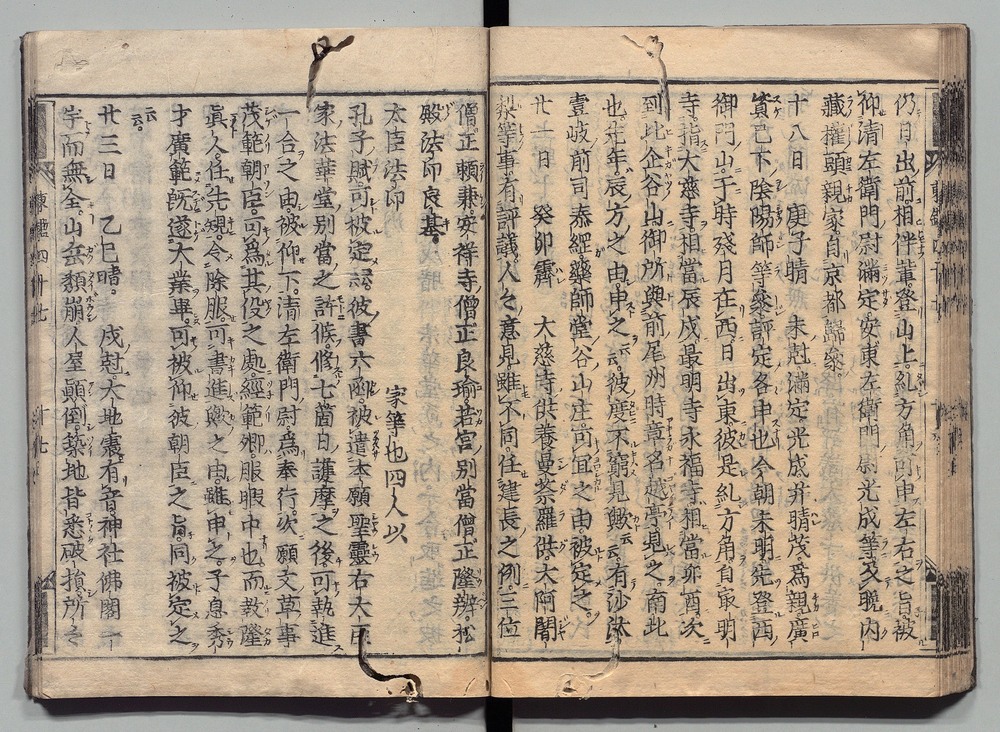 仍日出前相伴輩登山上糺方角可申左右之旨被
仰清左衛門尉滿定安東左衛門尉光成等及晩内
藏權頭親家自京都歸參
十八日 庚子晴 未尅滿定光成并晴茂爲親廣
資已下陰陽師等參評定各申也今朝未明先登西
御門山于時殘月在西日出東彼是糺方角自最明
寺指大慈寺相當辰戌最明寺永福寺相當卯酉次
到比企谷山御所與前尾州時章名越亭見之南北
也先年辰方之由申之云云彼度不窮見歟云云有沙汰
壹岐前司泰經藥師堂谷山庄可宜之由被定之
廿一日 癸卯霽 大慈寺供養曼荼羅供大阿闍
梨等事有評議人々意見雖不同任建長之例三位
僧正賴兼安祥寺僧正良瑜若宮別當僧正隆辨松
殿法印良基 家等也四人以
太臣法印
孔子賦可被定云云彼書六凾被遣本願聖靈右大臣
家法華堂別當之許候修七箇日護摩之後可執進
一合之由被仰下清左衛門尉爲奉行次願文草事
茂範朝臣可爲其役之處經範卿服暇中也而教隆
眞人任先規令除服可書進歟之由雖申之子息秀
才廣範既遂大業畢可被仰彼朝臣之旨同被定之
云云
廿三日 乙巳晴 戌尅大地震有音神社佛閣一
宇而無全山岳頽崩人屋顚倒築地皆悉破損所々
東鑑四十七